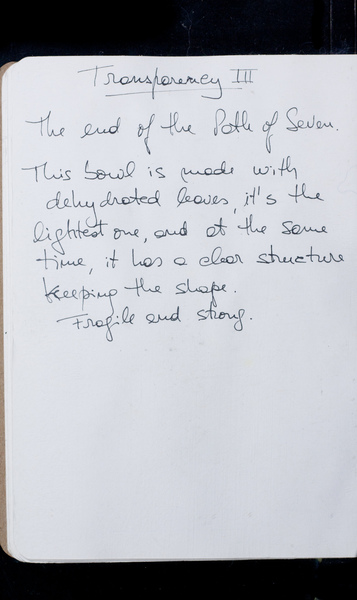 Transparency III
The end of the Path of Seven.
This bowl is made with
dehydrated leaves, it's the
lightest one, and at the same
time, it has a clear structure
keeping the shape.
Fragile and strong.